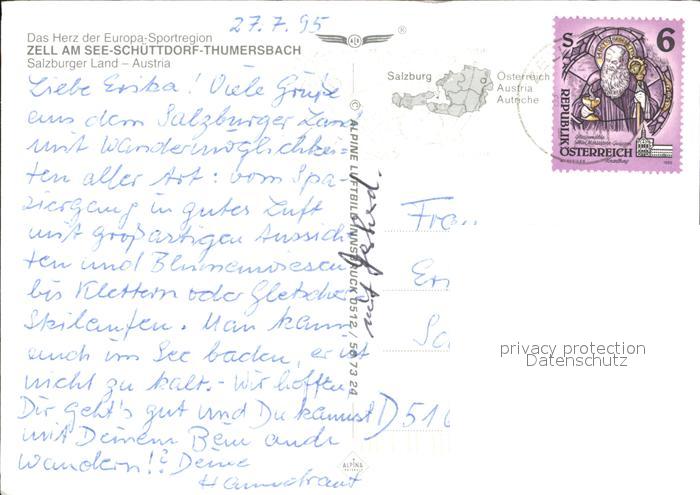 27.7.95
Das Herz der Europa-Sportregion
ZELL AM SEE-SCHÜTTDORF-THUMERSBACH
Salzburger Land – Austria
Liebe Erika! Viele Grüße
aus dem Salzburger Land
mit Wandermöglichkei-
ten aller Art: vom Spa-
ziergang in guter Luft
mit großartigen Aussich-
ten und Blumenwiesen
bis Klettern oder Gletscher
Skilaufen. Man kann
auch im See baden, er ist
nicht zu kalt. - Wir hoffen,
Dir geht's gut und Du kannst
mit Deinem Bein auch
wandern!? Deine
Hannetraut
mit
© ALPINE LUFTBILD INNSBRUCK 0512 /
ALPINA
Salzburg
Österreich
Austria
Autriche
S 6
REPUBLIK
ÖSTERREICH
Frau
Eri
D 510
privacy protection
Datenschutz